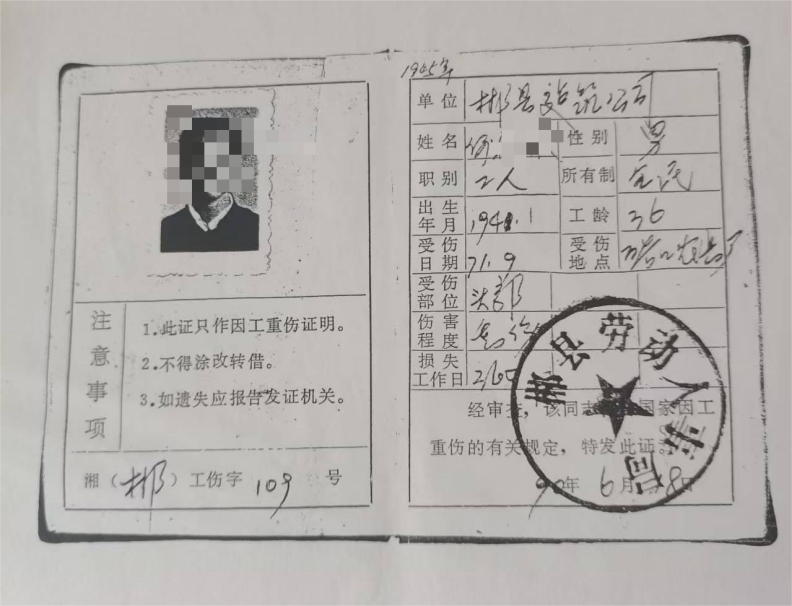 注意事项
1.此证只作因工重伤证明。
2.不得涂改转借。
3.如遗失应报告发证机关。
湘(郴)工伤字109号
1965年
单位 郴县建筑公司
姓名 性别 男
职别 工人 所有制 全民
出生年月 194 .1 工龄 36
受伤日期 71.9 受伤地点
受伤部位 头部
伤害程度
损失工作日
经审查,该同志 国家因工
重伤的有关规定,特发此证。
90年6月 8日
郴县劳动人事局